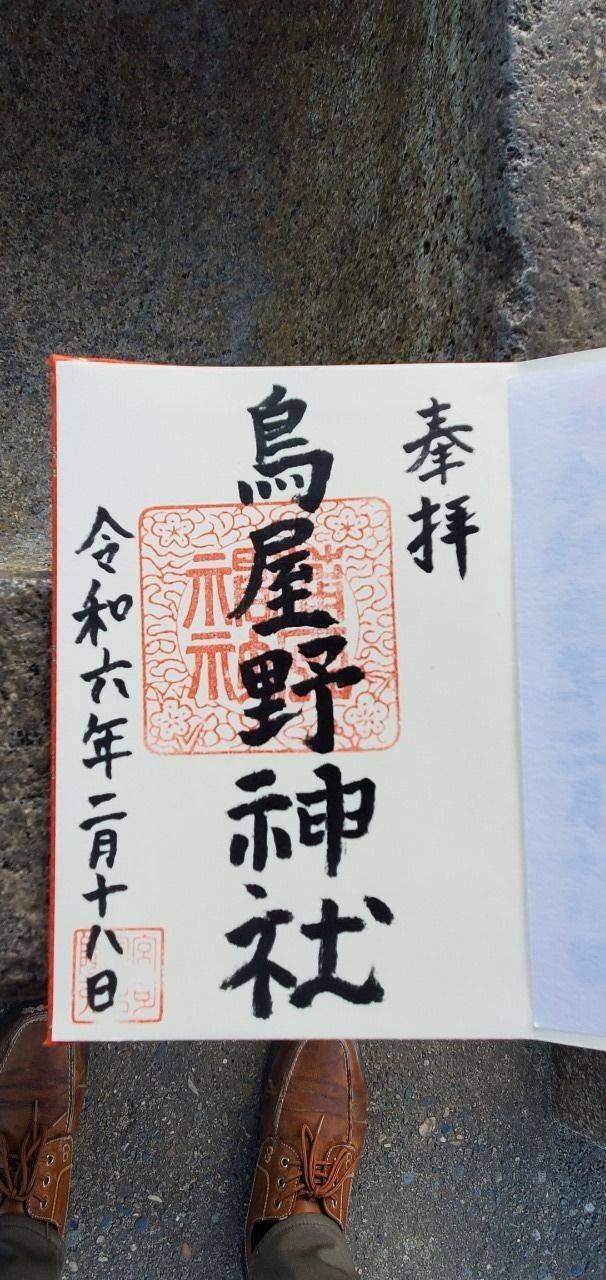 奉拝
鳥屋野神社
令和六年二月十八日